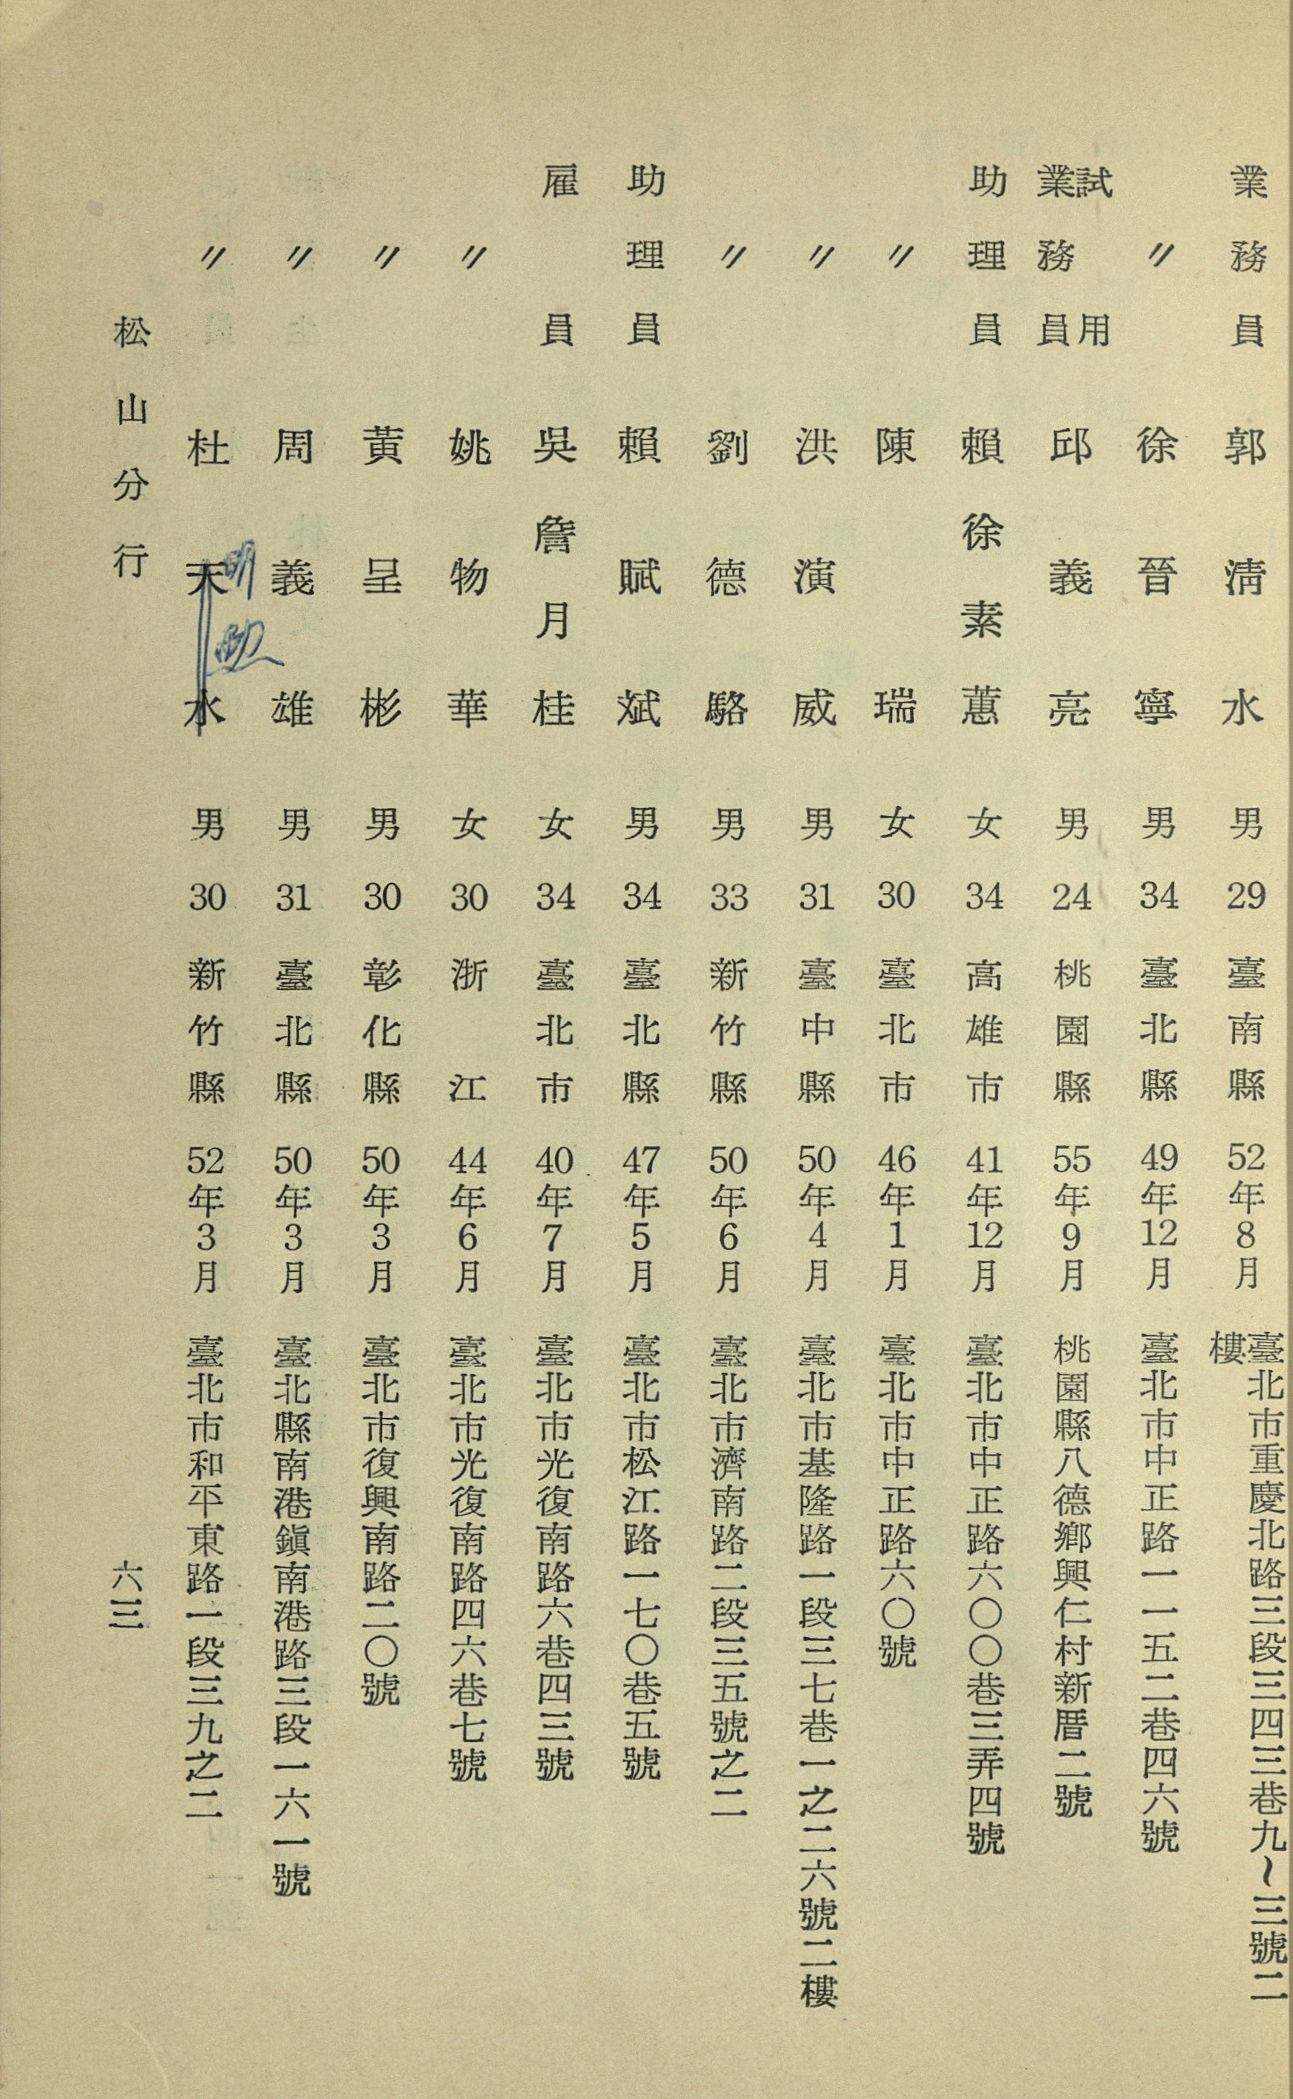 業務員 郭淸水 男 29 臺南縣 52年8月 臺北市重慶北路三段三四三巷九~三號二樓
〃 徐晉寧 男 34 臺北縣 49年12月 臺北市中正路一一五二巷四六號
試用業務員 邱義亮 男 24 桃園縣 55年9月 桃園縣八德鄉興仁村新厝二號
助理員 賴徐素蕙 女 34 高雄市 41年12月 臺北市中正路六〇〇巷三弄四號
〃 陳瑞 女 30 臺北市 46年1月 臺北市中正路六〇號
〃 洪演威 男 31 臺中縣 50年4月 臺北市基隆路一段三七巷一之二六號二樓
〃 劉德駱 男 33 新竹縣 50年6月 臺北市濟南路二段三五號之二
助理員 賴賦斌 男 34 臺北縣 47年5月 臺北市松江路一七〇巷五號
雇員 吳詹月桂 女 34 臺北市 40年7月 臺北市光復南路六巷四三號
〃 姚物華 女 30 浙江 44年6月 臺北市光復南路四六巷七號
〃 黃呈彬 男 30 彰化縣 50年3月 臺北市復興南路二〇號
〃 周義雄 男 31 臺北縣 50年3月 臺北縣南港鎭南港路三段一六一號
〃 杜天水 男 30 新竹縣 52年3月 臺北市和平東路一段三九之二
松山分行 六三